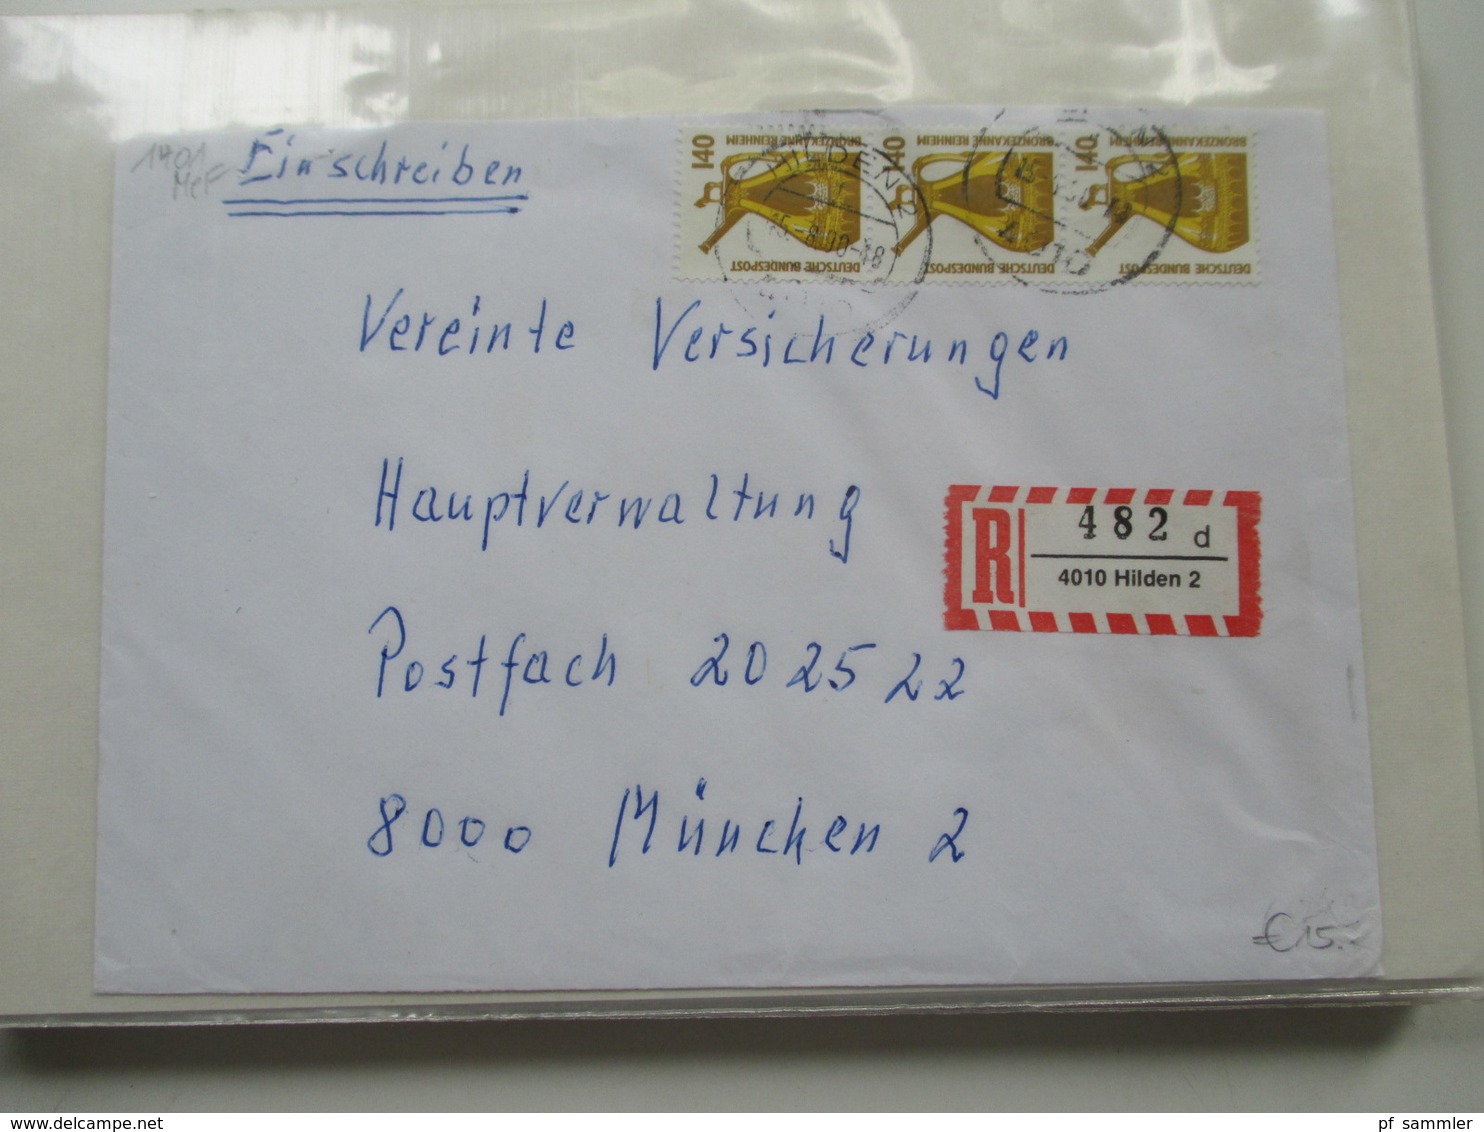 1401
MeF
Einschreiben
140 BRONZEKANNE REINHEIM
DEUTSCHE BUNDESPOST
140 BRONZEKANNE REINHEIM
DEUTSCHE BUNDESPOST
140 BRONZEKANNE REINHEIM
DEUTSCHE BUNDESPOST
HILDEN 2
4010
Vereinte Versicherungen
Hauptverwaltung
R 482 d
4010 Hilden 2
Postfach 20 25 22
8000 München 2
€ 15.-
delcampe.net
pf_sammler